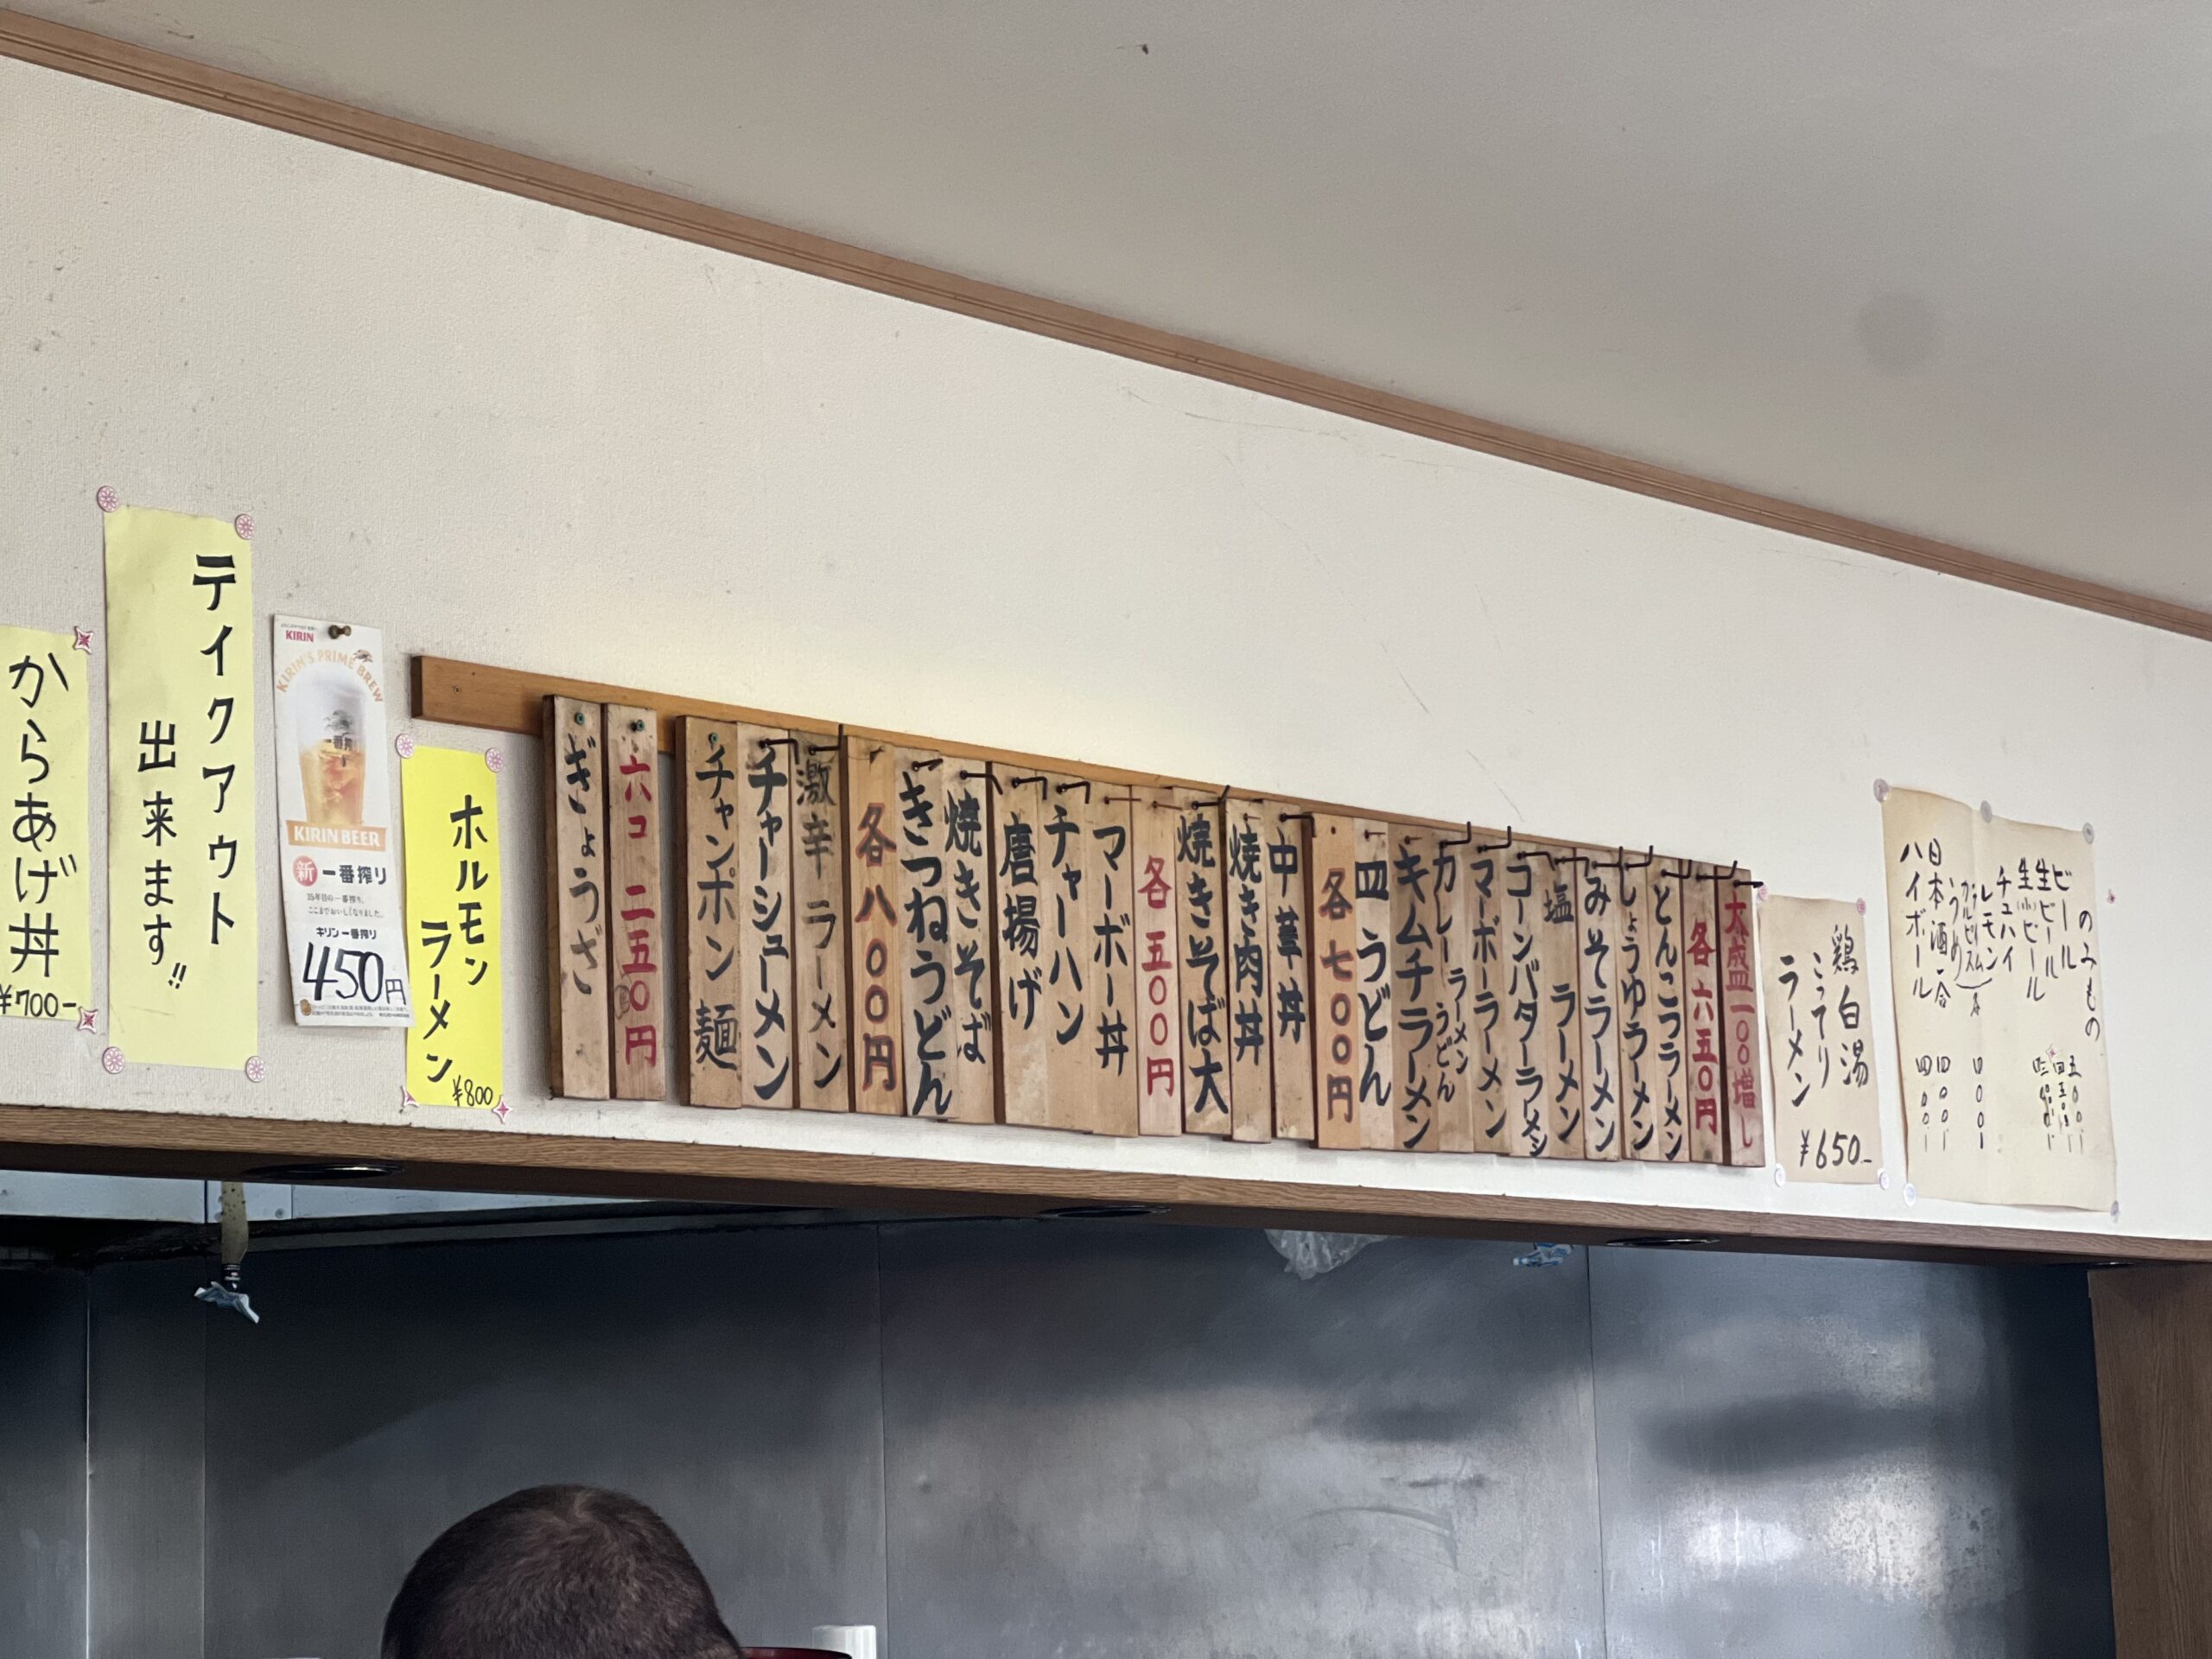 のみもの
ビール 五〇〇
生ビール 四五〇
生小ビール
チュハイ
レモン
ライム
カルピス
うめ
日本酒一合 四〇〇
ハイボール 四〇〇
鶏白湯
こってり
ラーメン
¥650-
大盛一〇〇増し
各六五〇円
とんこつラーメン
しょうゆラーメン
みそラーメン
塩ラーメン
コーンバターラーメン
マーボーラーメン
カレーラーメン
うどん
キムチラーメン
皿うどん
各七〇〇円
中華丼
焼き肉丼
焼きそば大
各五〇〇円
マーボー丼
チャーハン
唐揚げ
焼きそば
きつねうどん
各八〇〇円
激辛ラーメン
チャーシューメン
チャンポン麺
六コ二五〇円
ぎょうざ
ホルモン
ラーメン
¥800
KIRIN
KIRIN'S PRIME BREW
一番搾り
KIRIN BEER
新 一番搾り
ここまでおいしくなりました。
キリン一番搾り
450円
テイクアウト
出来ます!!
からあげ丼
¥700-